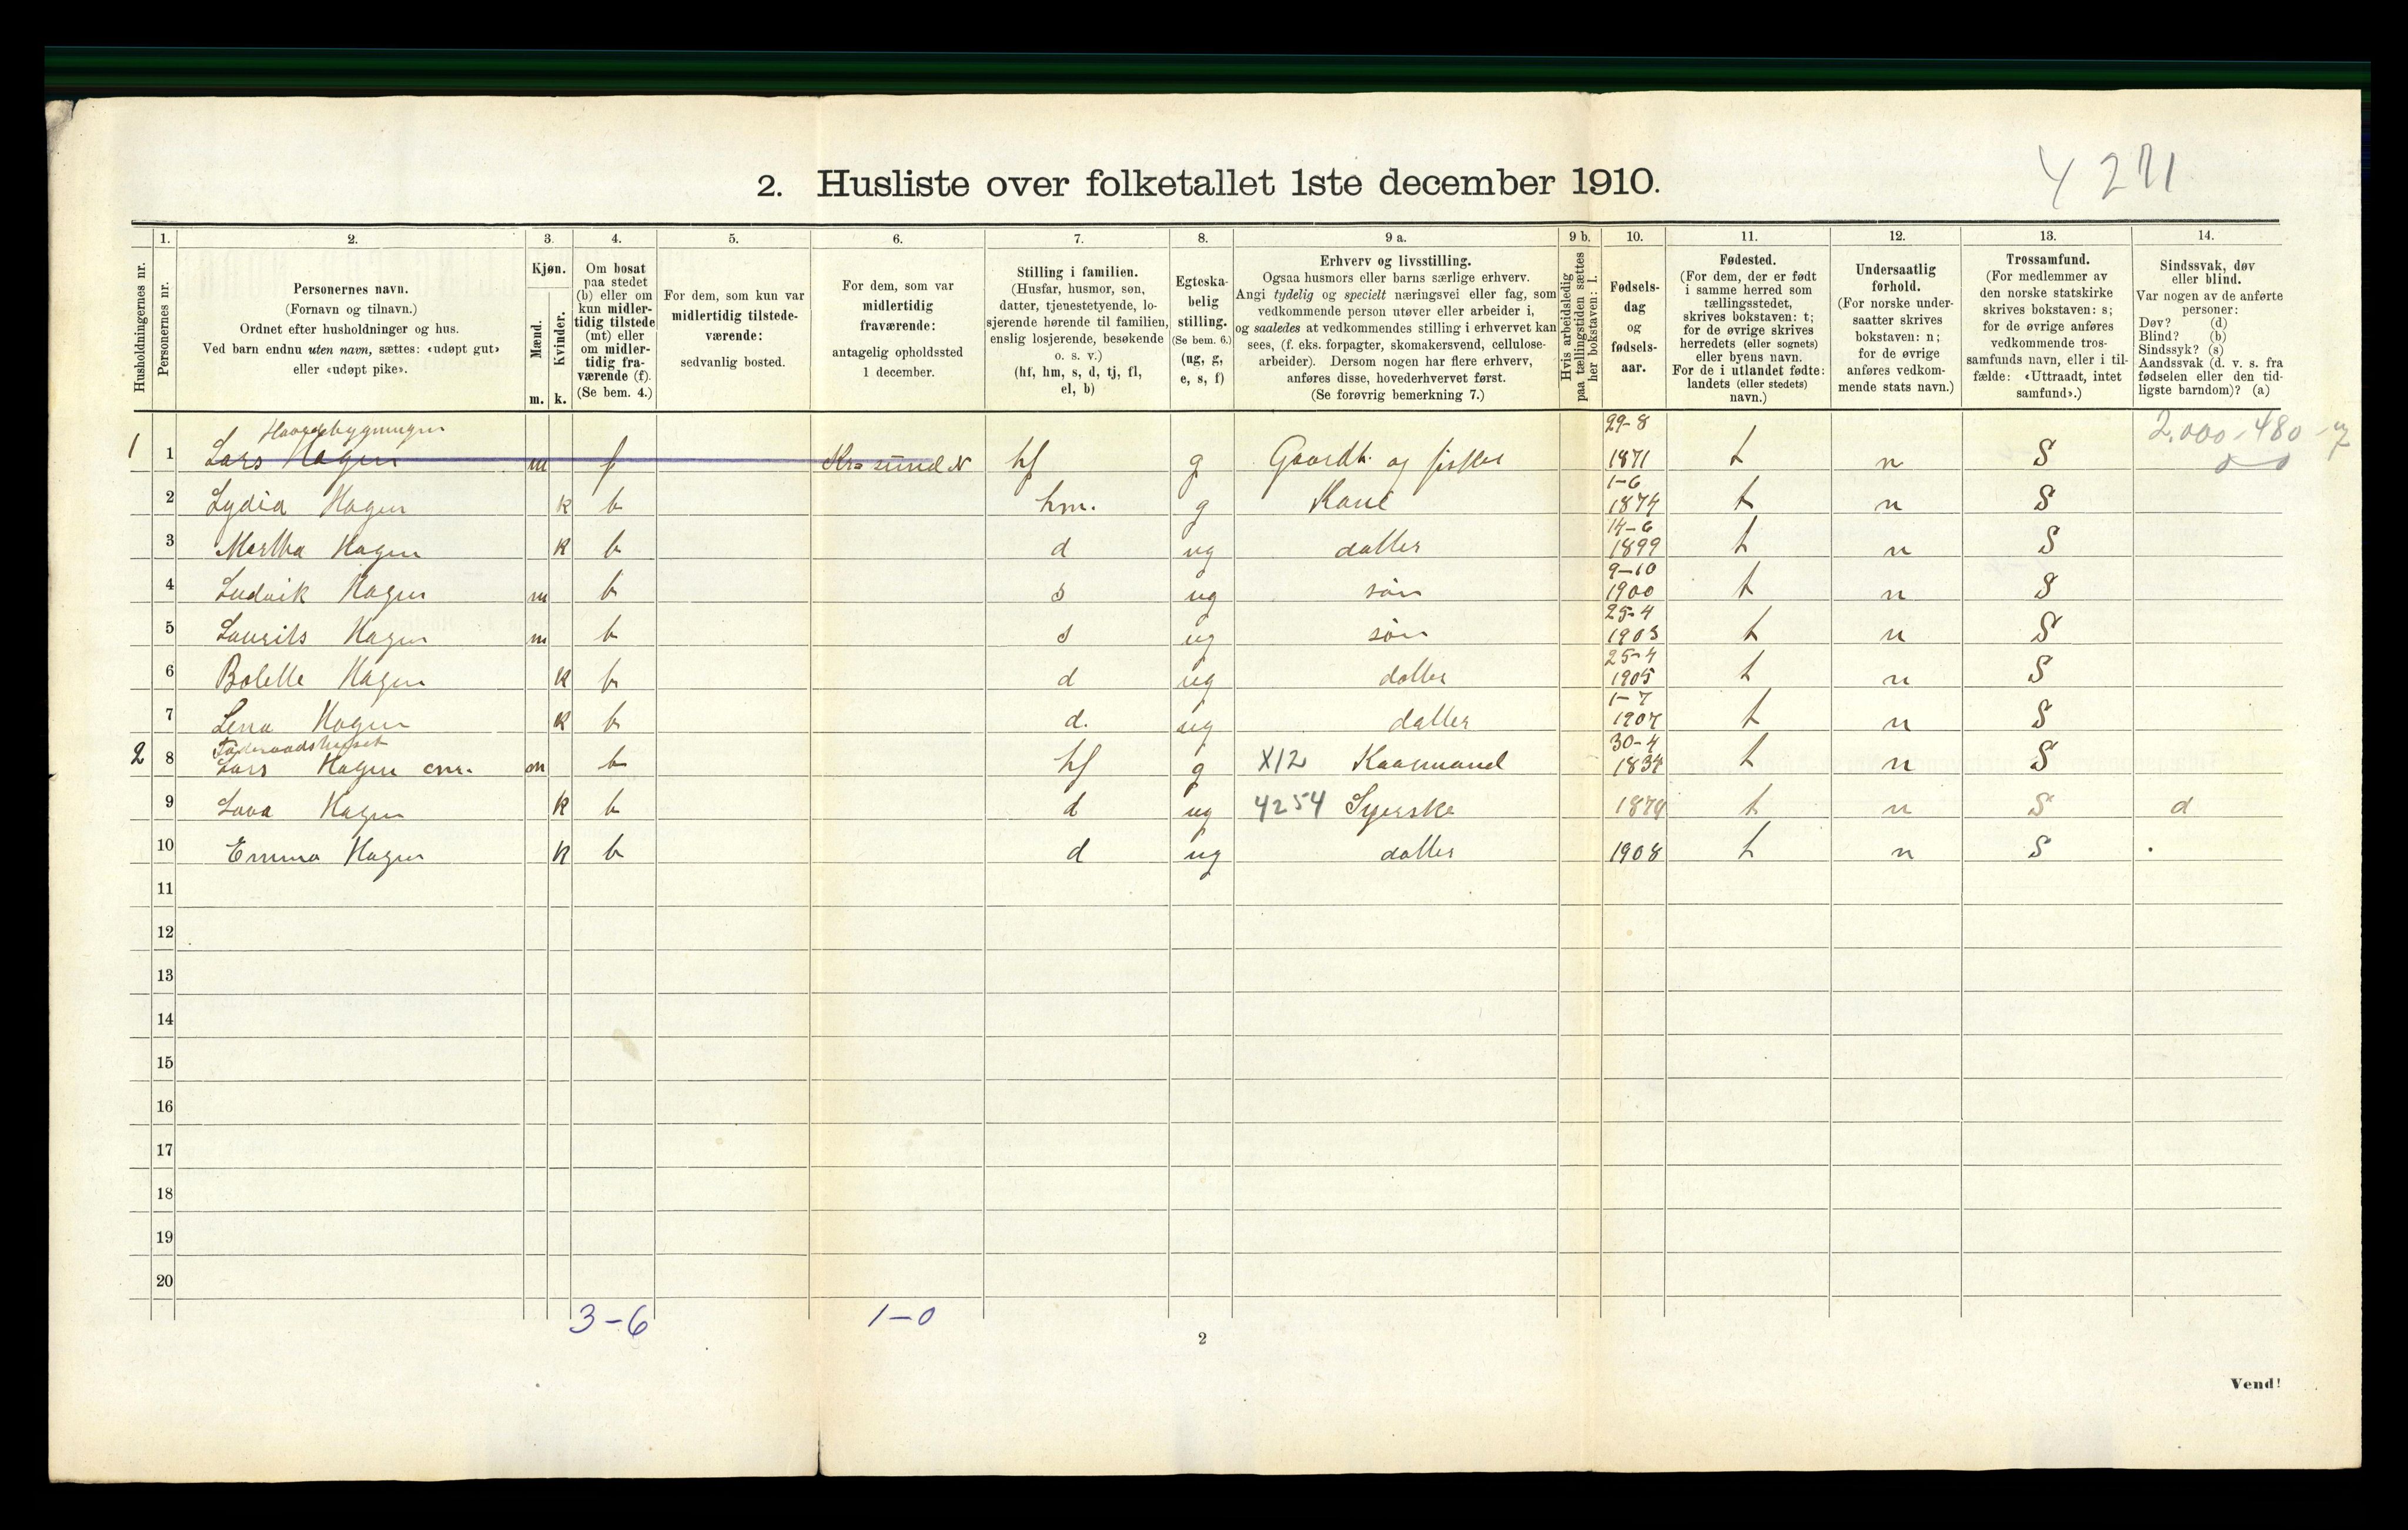 4271
2. Husliste over folketallet 1ste december 1910.
Husholdningernes nr.
1.
Personernes nr.
2.
Personernes navn.
(Fornavn og tilnavn.)
Ordnet efter husholdninger og hus.
Ved barn endnu uten navn, sættes: «udøpt gut»
eller «udøpt pike».
3.
Kjøn.
Mænd.
Kvinder.
m. k.
4.
Om bosat
paa stedet
(b) eller om
kun midler-
tidig tilstede
(mt) eller
om midler-
tidig fra-
værende (f).
(Se bem. 4.)
5.
For dem, som kun var
midlertidig tilstede-
værende:
sedvanlig bosted.
6.
For dem, som var
midlertidig
fraværende:
antagelig opholdssted
1 december.
7.
Stilling i familien.
(Husfar, husmor, søn,
datter, tjenestetyende, lo-
sjerende hørende til familien,
enslig losjerende, besøkende
o. s. v.)
(hf, hm, s, d, tj, fl,
el, b)
8.
Egteska-
belig
stilling.
(Se bem. 6.)
(ug, g,
e, s, f)
9 a.
Erhverv og livsstilling.
Ogsaa husmors eller barns særlige erhverv.
Angi tydelig og specielt næringsvei eller fag, som
vedkommende person utøver eller arbeider i,
og saaledes at vedkommendes stilling i erhvervet kan
sees, (f. eks. forpagter, skomakersvend, cellulose-
arbeider). Dersom nogen har flere erhverv,
anføres disse, hovederhvervet først.
(Se forøvrig bemerkning 7.)
9 b.
Hvis arbeidsledig
paa tællingstiden sættes
her bokstaven: l.
10.
Fødsels-
dag
og
fødsels-
aar.
11.
Fødested.
(For dem, der er født
i samme herred som
tællingsstedet,
skrives bokstaven: t;
for de øvrige skrives
herredets (eller sognets)
eller byens navn.
For de i utlandet fødte:
landets (eller stedets)
navn.)
12.
Undersaatlig
forhold.
(For norske under-
saatter skrives
bokstaven: n;
for de øvrige
anføres vedkom-
mende stats navn.)
13.
Trossamfund.
(For medlemmer av
den norske statskirke
skrives bokstaven: s;
for de øvrige anføres
vedkommende tros-
samfunds navn, eller i til-
fælde: «Uttraadt, intet
samfund».)
14.
Sindssvak, døv
eller blind.
Var nogen av de anførte
personer:
Døv? (d)
Blind? (b)
Sindssyk? (s)
Aandssvak (d. v. s. fra
fødselen eller den tid-
ligste barndom)? (a)
Hovedbygningen 29-8 2.000-480
1 1 Lars Hagen m f Kr sund N hf g Gaardb. og fisker 1871 t n S
1-6
2 Lydia Hagen k b hm. g Kone 1874 t n S
14-6
3 Martha Hagen k b d ug datter 1899 t n S
9-10
4 Ludvik Hagen m b s ug søn 1900 t n S
25-4
5 Laurits Hagen m b s ug søn 1903 t n S
25-4
6 Bolette Hagen k b d ug datter 1905 t n S
1-7
7 Lena Hagen k b d. ug datter 1907 t n S
Føderaadshuset 30-4
2 8 Lars Hagen m b hf g X12 Kaarmand 1834 t n S
9 Lava Hagen k b d ug 4254 Syerske 1874 t n S d
10 Emma Hagen k b d ug datter 1908 t n S
11
12
13
14
15
16
17
18
19
20
3-6 1-0
2
Vend!